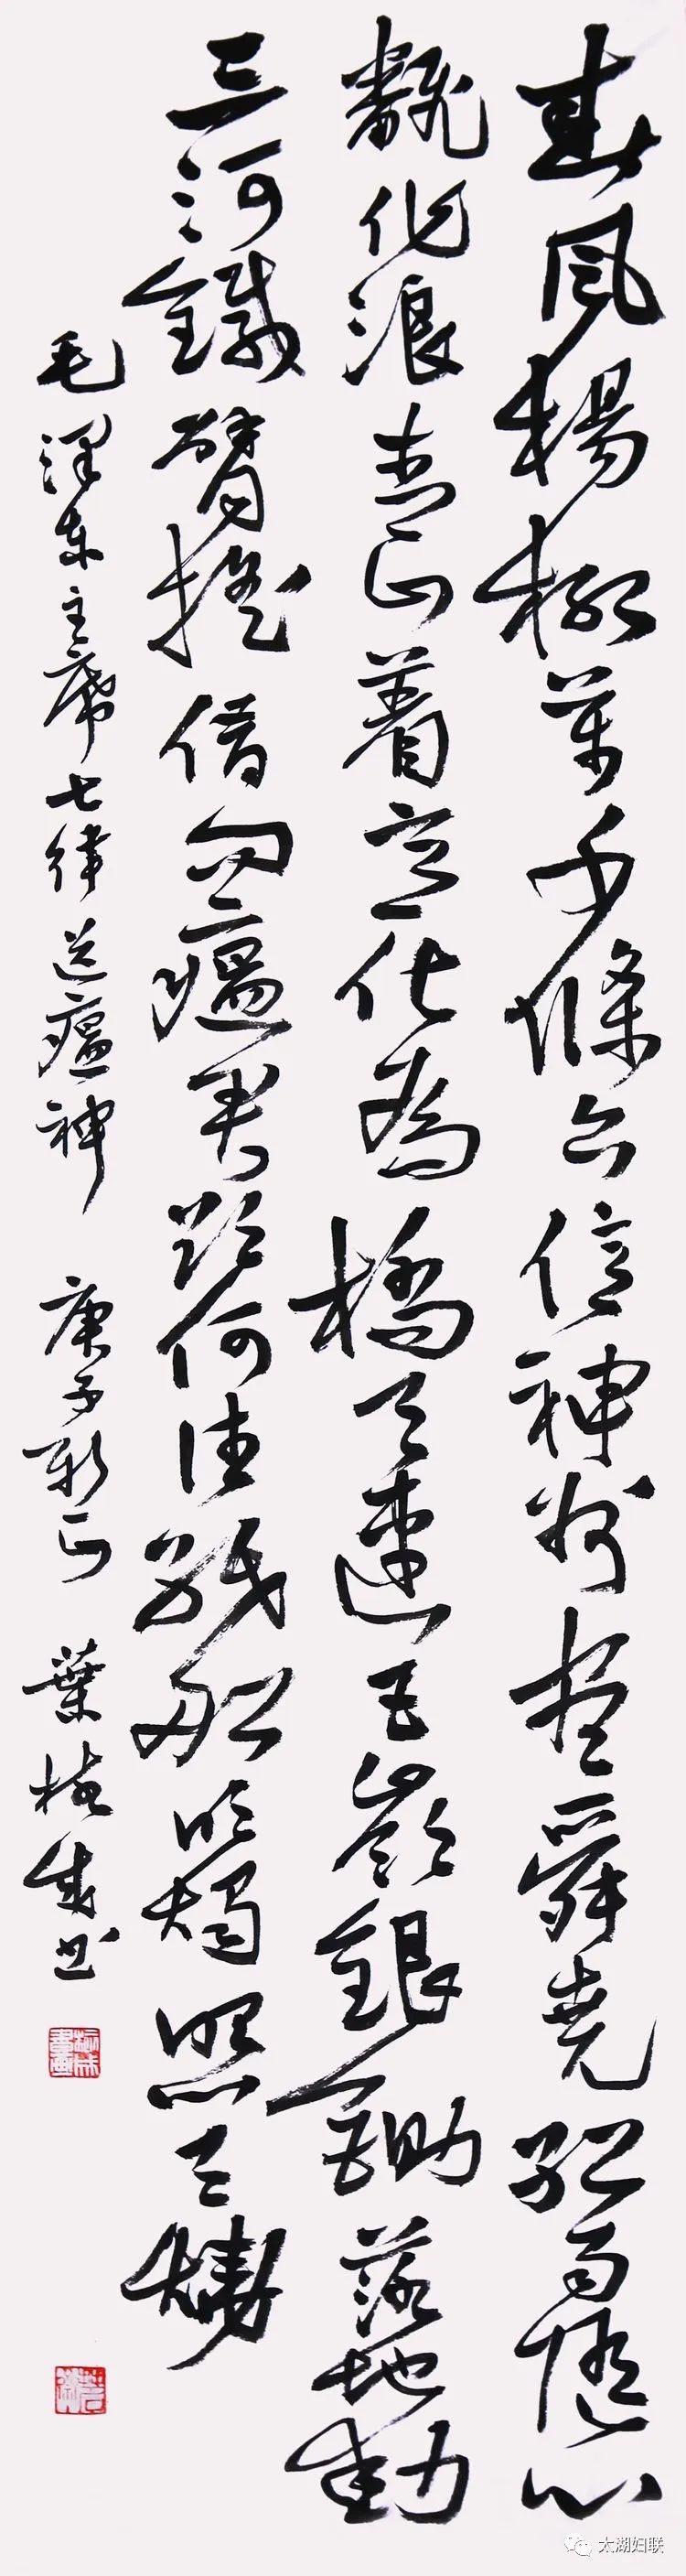 春風楊柳萬千條六億神州盡舜堯紅雨隨心
翻作浪青山着意化為橋天連五嶺銀鋤落地動
三河鐵臂搖借問瘟君欲何往紙船明燭照天燒
毛澤東主席七律送瘟神 庚子新正 葉成书
太湖妇联